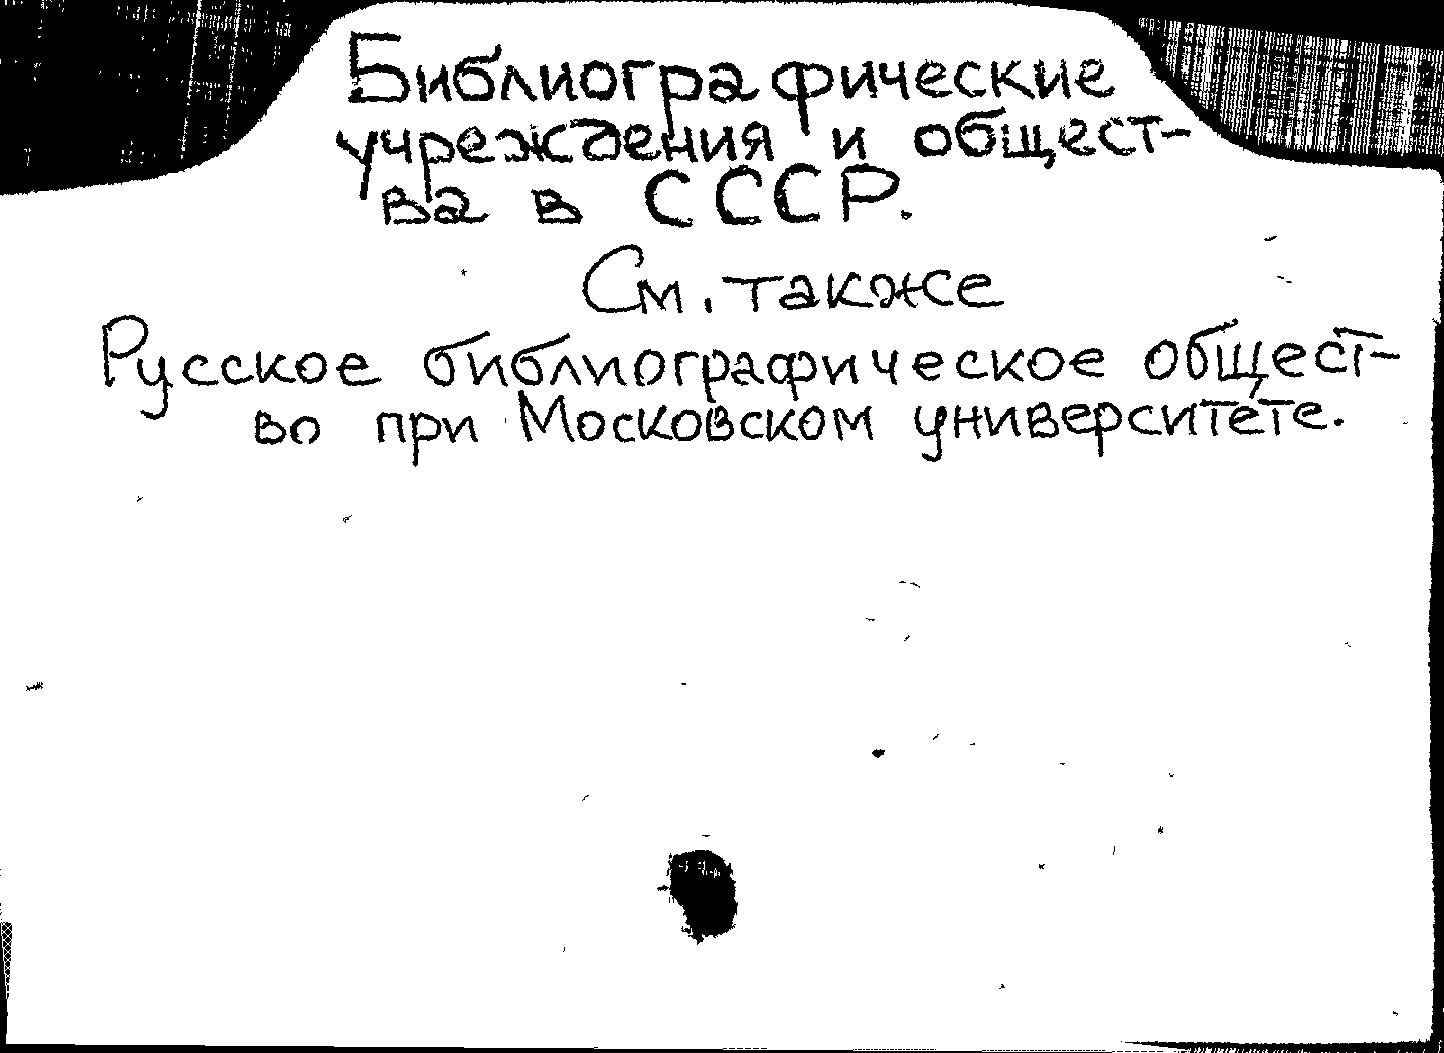 Библиографические
учреждения и общест-
ва в СССР.
См. также
Русское библиографическое общест-
во при Московском университете.